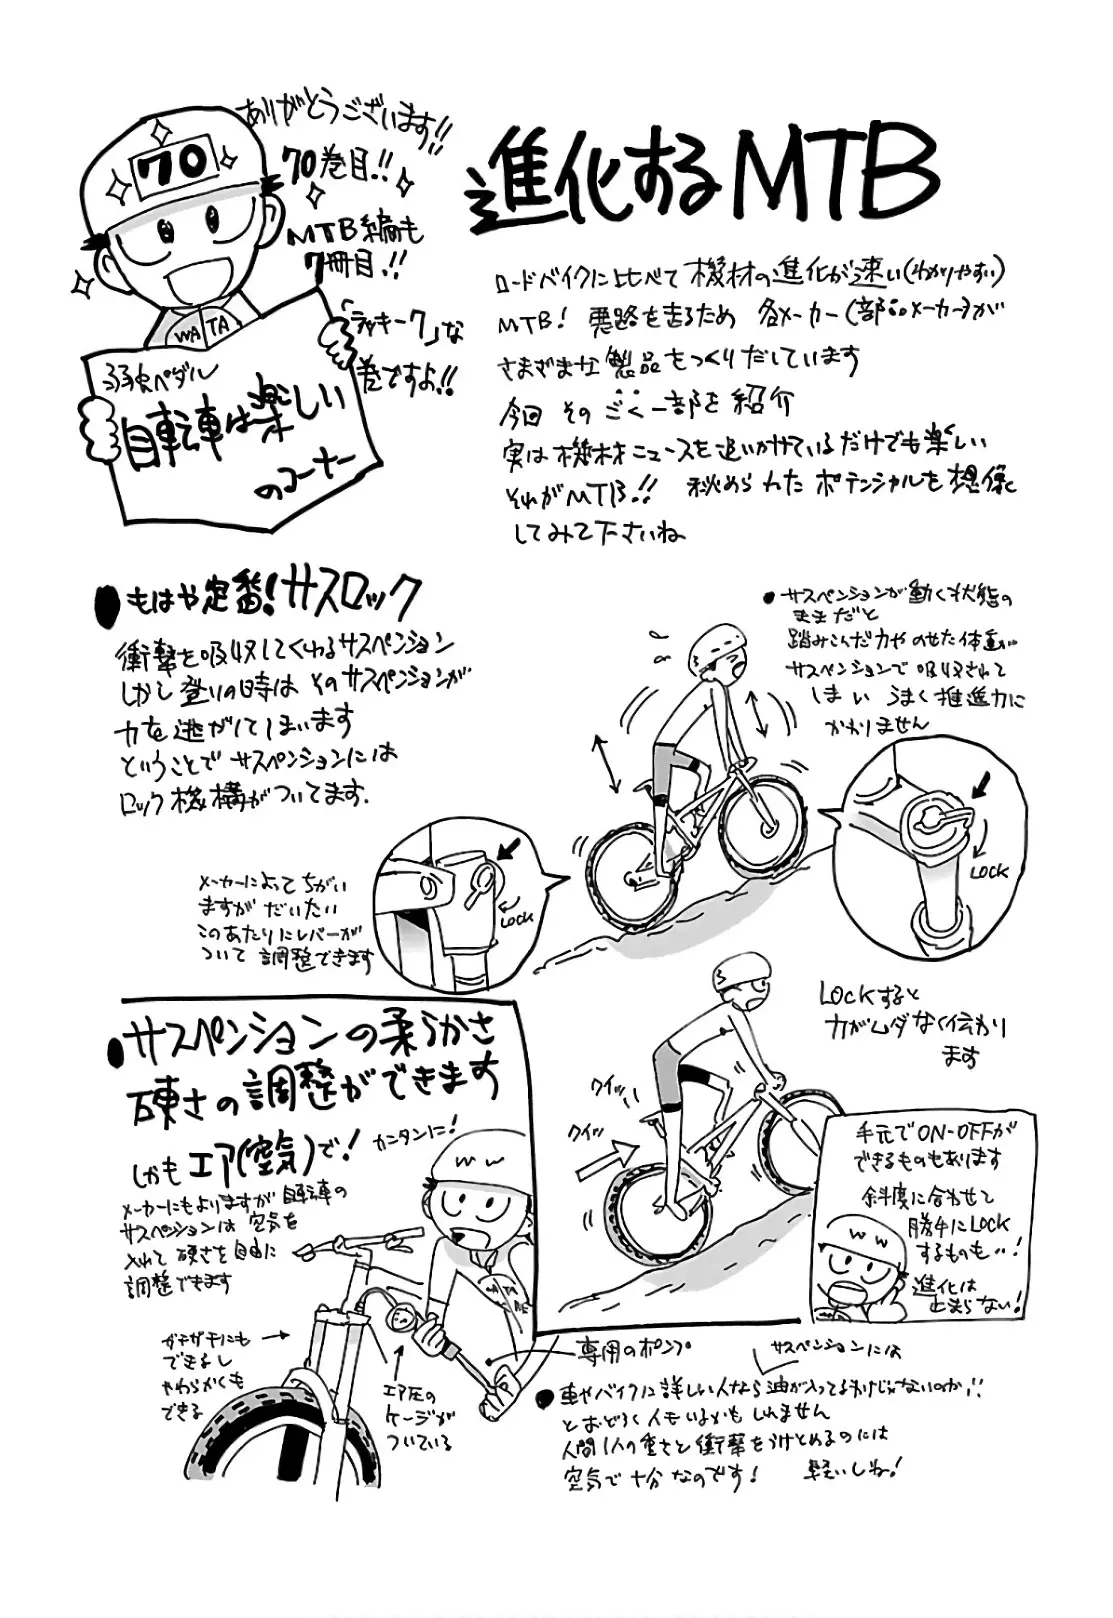 ありがとうございます!!
70巻目!!
MTB編も
7冊目!!
「ラッキー7」な
巻ですよ!!
70
WATA
弱虫ペダル
自転車は楽しい
のコーナー
進化するMTB
ロードバイクに比べて機材の進化が速い(わかりやすい)
MTB! 悪路を走るため 各メーカー(部品メーカー)が
さまざまな製品をつくりだしています
今回 そのごく一部を紹介
実は機材ニュースを追いかけているだけでも楽しい
それがMTB!! 秘められたポテンシャルを想像
してみて下さいね
●もはや定番!サスロック
衝撃を吸収してくれるサスペンション
しかし登りの時は そのサスペンションが
力を逃がしてしまいます
ということで サスペンションには
ロック機構がついてます.
●サスペンションが動く状態の
ままだと
踏みこんだ力やのせた体重が
サスペンションで吸収されて
しまい うまく推進力に
かわりません
LOCK
メーカーによってちがい
ますが だいたい
このあたりにレバーが
ついて 調整できます
LOCK
LOCKすると
力がムダなく伝わり
ます
クイッ
クイッ
手元でON-OFFが
できるものもあります
斜度に合わせて
勝手にLOCK
するものも…!
進化は
止まらない!
●サスペンションの柔らかさ
硬さの調整ができます
しかも エア(空気)で!
カンタンに!
メーカーにもよりますが 自転車の
サスペンションは 空気を
入れて 硬さを自由に
調整できます
ガチガチにも
できるし
やわらかくも
できる
エア圧の
ゲージが
ついている
専用のポンプ
サスペンションには
●車やバイクに詳しい人なら油が入ってるわけじゃないのか!!
とおどろく人もいるかもしれません
人間1人の重さと衝撃をうけとめるのには
空気で十分なのです! 軽いしね!